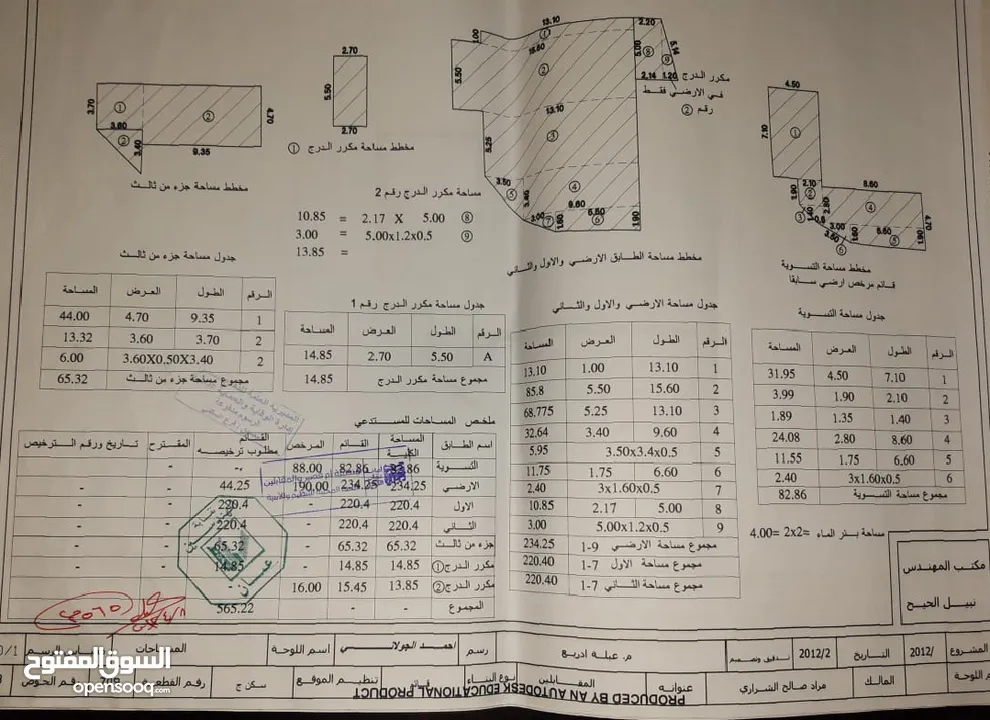 2.70
5.50
2.70
مخطط مساحة مكرر الدرج ①
3.70
①
②
4.70
3.60
②
3.40
9.35
مخطط مساحة جزء من ثالث
13.10
1.00
①
15.60
5.50
②
13.10
③
5.25
3.50
⑤
④
9.60
⑦
⑥
1.90
2.20
5.00
⑧
⑨
5.14
2.14
1.20
مكرر الدرج
في الارضي فقط
رقم ②
مخطط مساحة الطابق الارضي والاول والثاني
4.50
7.10
①
2.10
②
1.90
③
2.80
8.60
④
4.70
3.00
3.50
6.60
⑤
1.90
⑥
مخطط مساحة التسوية
قائم مرخص ارضي سابقا
مساحة مكرر الدرج رقم 2
10.85 = 2.17 X 5.00 ⑧
3.00 = 5.00x1.2x0.5 ⑨
13.85 =
جدول مساحة جزء من ثالث
الرقم الطول العرض المساحة
1 9.35 4.70 44.00
2 3.70 3.60 13.32
2 3.60X0.50X3.40 6.00
مجموع مساحة جزء من ثالث 65.32
جدول مساحة مكرر الدرج رقم 1
الرقم الطول العرض المساحة
A 5.50 2.70 14.85
مجموع مساحة مكرر الدرج 14.85
جدول مساحة الارضي والاول والثاني
الرقم الطول العرض المساحة
1 13.10 1.00 13.10
2 15.60 5.50 85.8
3 13.10 5.25 68.775
4 9.60 3.40 32.64
5 3.50x3.4x0.5 5.95
6 6.60 1.75 11.75
7 3x1.60x0.5 2.40
8 5.00 2.17 10.85
9 5.00x1.2x0.5 3.00
مجموع مساحة الارضي 9-1 234.25
مجموع مساحة الاول 7-1 220.40
مجموع مساحة الثاني 7-1 220.40
جدول مساحة التسوية
الرقم الطول العرض المساحة
1 7.10 4.50 31.95
2 2.10 1.90 3.99
3 1.40 1.35 1.89
4 8.60 2.80 24.08
5 6.60 1.75 11.55
6 3x1.60x0.5 2.40
مجموع مساحة التسوية 82.86
مساحة بئر الماء =2x2 =4.00
ملخص المساحات للمستدعي
اسم الطابق المساحة الكلية القائم المرخص القائم مطلوب ترخيصه المقترح تاريخ ورقم الترخيص
التسوية 82.86 82.86 88.00 - -
الارضي 234.25 234.25 190.00 44.25 -
الاول 220.4 220.4 - 220.4 -
الثاني 220.4 220.4 - 220.4 -
جزء من ثالث 65.32 65.32 - 65.32 -
مكرر الدرج① 14.85 14.85 - 14.85 -
مكرر الدرج② 13.85 15.45 16.00 -
المجموع - - 565.22
مكتب المهندس
نبيل الحيح
المشروع /2012 التاريخ 2012/2 تدقيق وتصميم م. عبلة ادريع رسم احمد الجولاني اسم اللوحة المساحات
اللوحة المالك مراد صالح الشراري عنوانه المقابلين نوع البناء قائم تنظيم الموقع سكن ج رقم القطعة رقم الحوض
PRODUCED BY AN AUTODESK EDUCATIONAL PRODUCT
السوق المفتوح
opensooq.com